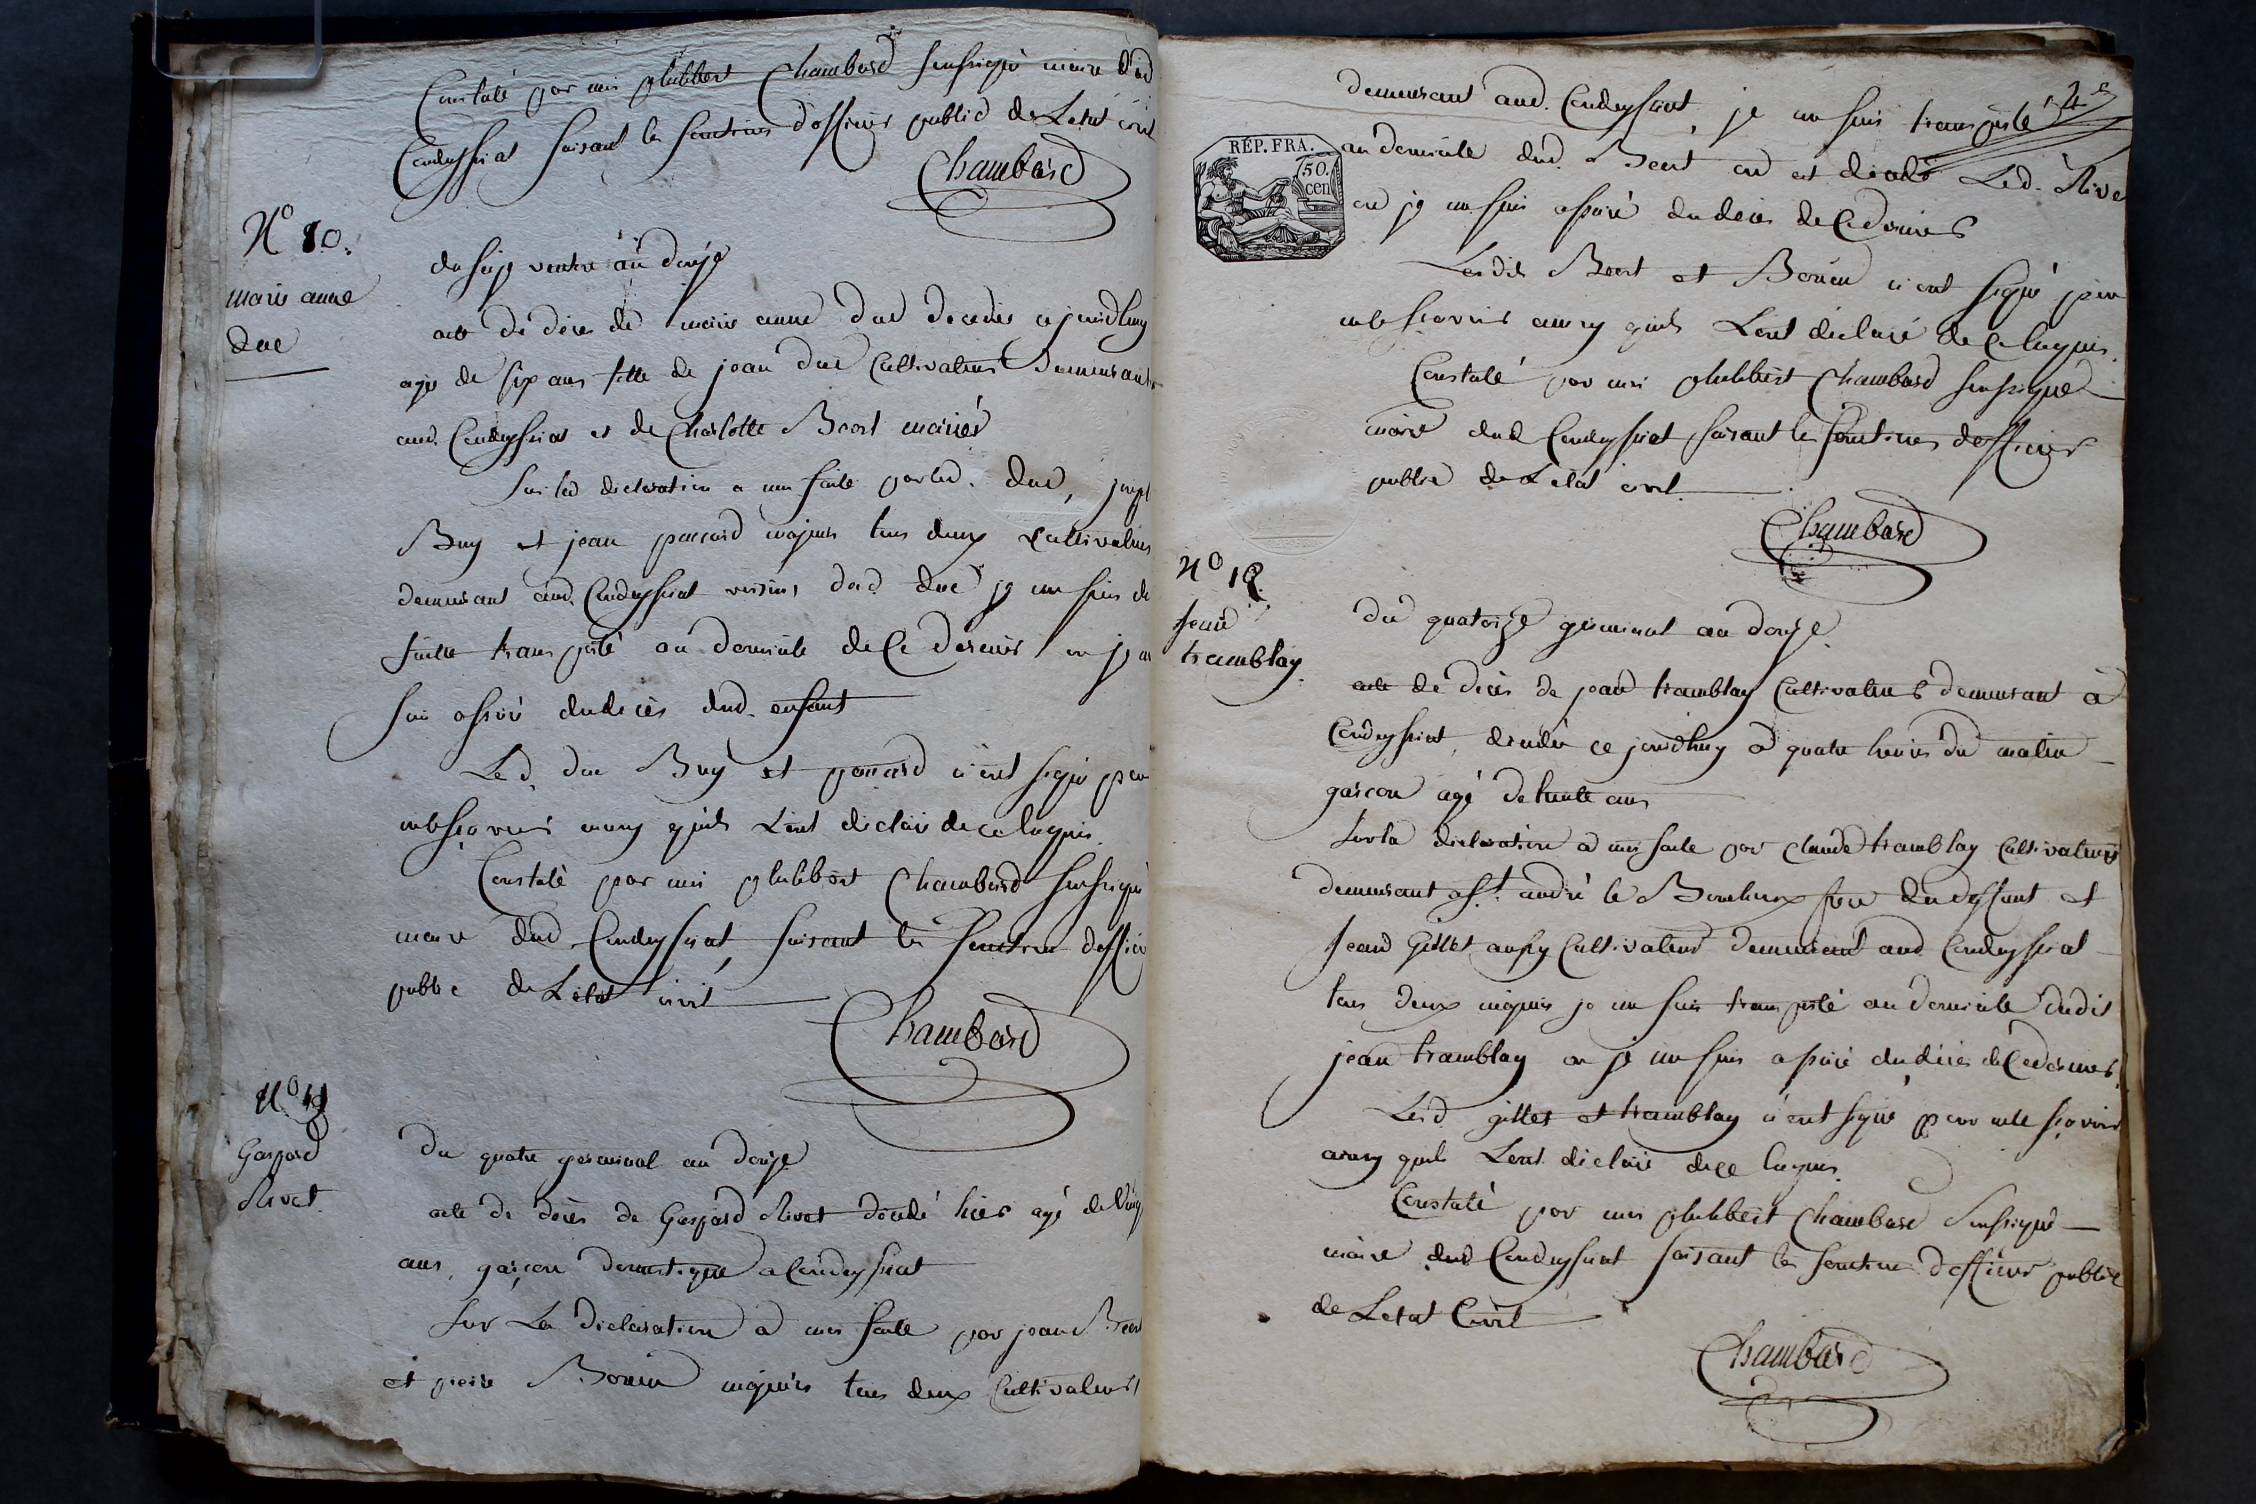 Constaté par moi philibert Chambard soussigné maire dud
Condeyssiat faisant les fonctions d'officier public de L'etat civil
Chambard
N° 10.
marie anne
duc
du seize ventose an douze
acte de décès de marie anne duc décédée ce jourdhuy
agée de six ans fille de jean duc Cultivateur demeurant
aud. Condeyssiat et de Charlotte Beort mariés
Sur la déclaration a moi faite par led. duc, joseph
Buy et jean poncard majeurs tous deux Cultivateurs
demeurant aud. Condeyssiat voisins dud duc je me suis de
suitte transporté au domicile de Ce dernier ou je me
suis assuré du décès dud. enfant
Led. duc Buy et poncard n'ont signé pour
ne le sçavoir ainsy quils L'ont déclaré de ce Enquis.
Constaté par moi philibert Chambard soussigné
maire dud. Condeyssiat, faisant les fonctions dofficier
public de L'état civil
Chambard
N° 11
Gaspard
Rivet.
du quatre germinal an douze
acte de décès de Gaspard Rivet décédé hier agé de vingt
ans, garçon domestique a Condeyssiat
Sur La déclaration a moi faite par jean Beort
et pierre Borein majeurs tous deux Cultivateurs
4e
demeurant aud. Condeyssiat, je me suis transporté
RÉP. FRA.
50.
cen
au domicile dud. Beort ou est décédé Led. Rivet
ou je me suis assuré du décès de Ce dernier
Lesdits Beort et Borein n'ont signé pour
ne le sçavoir ainsy quils L'ont déclaré de Ce Enquis.
Constaté par moi philibert Chambard soussigné
maire dud Condeyssiat, faisant les fonctions dofficier
public de L'etat civil
Chambard
N° 12.
Jean
tramblay.
du quatorze germinal an douze
acte de décès de jean tramblay Cultivateur demeurant à
Condeyssiat, décédé ce jourdhuy à quatre heures du matin
garçon agé de trente ans
Sur la déclaration a moi faite par claude tramblay Cultivateur
demeurant a St. andré le Bouchoux frere du deffunt et
Jean Gillet aussy Cultivateur demeurant aud Condeyssiat
tous deux majeurs je me suis transporté au domicile dudit
jean tramblay ou je me suis assuré du décès de Ce dernier.
Lesd gillet et tramblay n'ont signé pour ne le sçavoir
ainsy quils L'ont déclaré de ce Enquis.
Constaté par moi philibert Chambard soussigné
maire dud Condeyssiat faisant les fonctions d'officier public
de L'etat Civil
Chambard